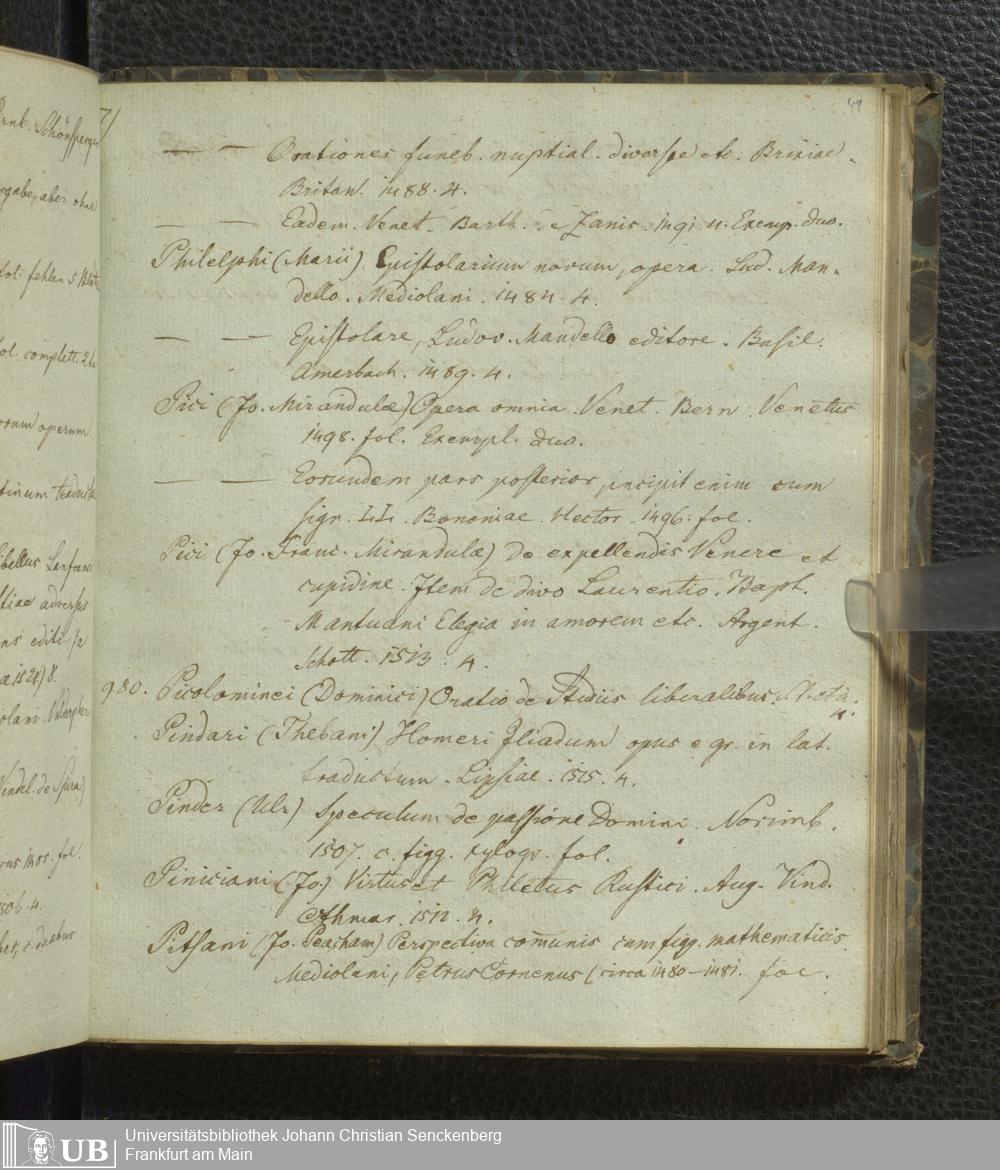 49
— — Orationes funeb. nuptial. diversae etc. Brixiae.
Britan. 1488. 4.
— — Eadem. Venet. Barth. de Zanis. 1491. 4. Exemp. duo.
Philelphi (Marii) Epistolarium novum, opera. Lud. Man-
dello. Mediolani. 1484. 4.
— — Epistolare, Ludov. Mandello editore. Basil.
Amerbach. 1489. 4.
Pici (Jo. Mirandulae) Opera omnia. Venet. Bern. Venetus
1498. fol. Exempl. duo.
— — Eorundem pars posterior, incipit enim cum
sign. LL. Bononiae. Hector. 1496. fol.
Pici (Jo. Franc. Mirandulae) De expellendis Venere et
cupidine. Item de divo Laurentio. Bapt.
Mantuani Elegia in amorem etc. Argent.
Schott. 1513. 4.
980. Picolominei (Dominici) Oratio de Studiis liberalibus. S. l.
4.
Pindari (Thebani) Homeri Iliadum opus e gr. in lat.
traductum. Lipsiae. 1515. 4.
Pinder (Ulr) Speculum de passione Domini. Norimb.
1507. c. figg. xylogr. fol.
Piniciani (Jo.) Virtus et Philetus Rustici. Aug. Vind.
Othmar. 1512. 4.
Pitsani (Jo. Peacham) Perspectiva com̄unis cum figg. mathematicis
Mediolani, Petrus Cornenus (circa 1480–1481. fol.
Schönsperger
aber ohne
fol. fehlen 5 Blätt
complett. 2
operum
libellus Lanfranc
adversus
editi
1528) 8.
Vindel. de Spira)
fol.
4.
c. duabus
UB
Universitätsbibliothek Johann Christian Senckenberg
Frankfurt am Main